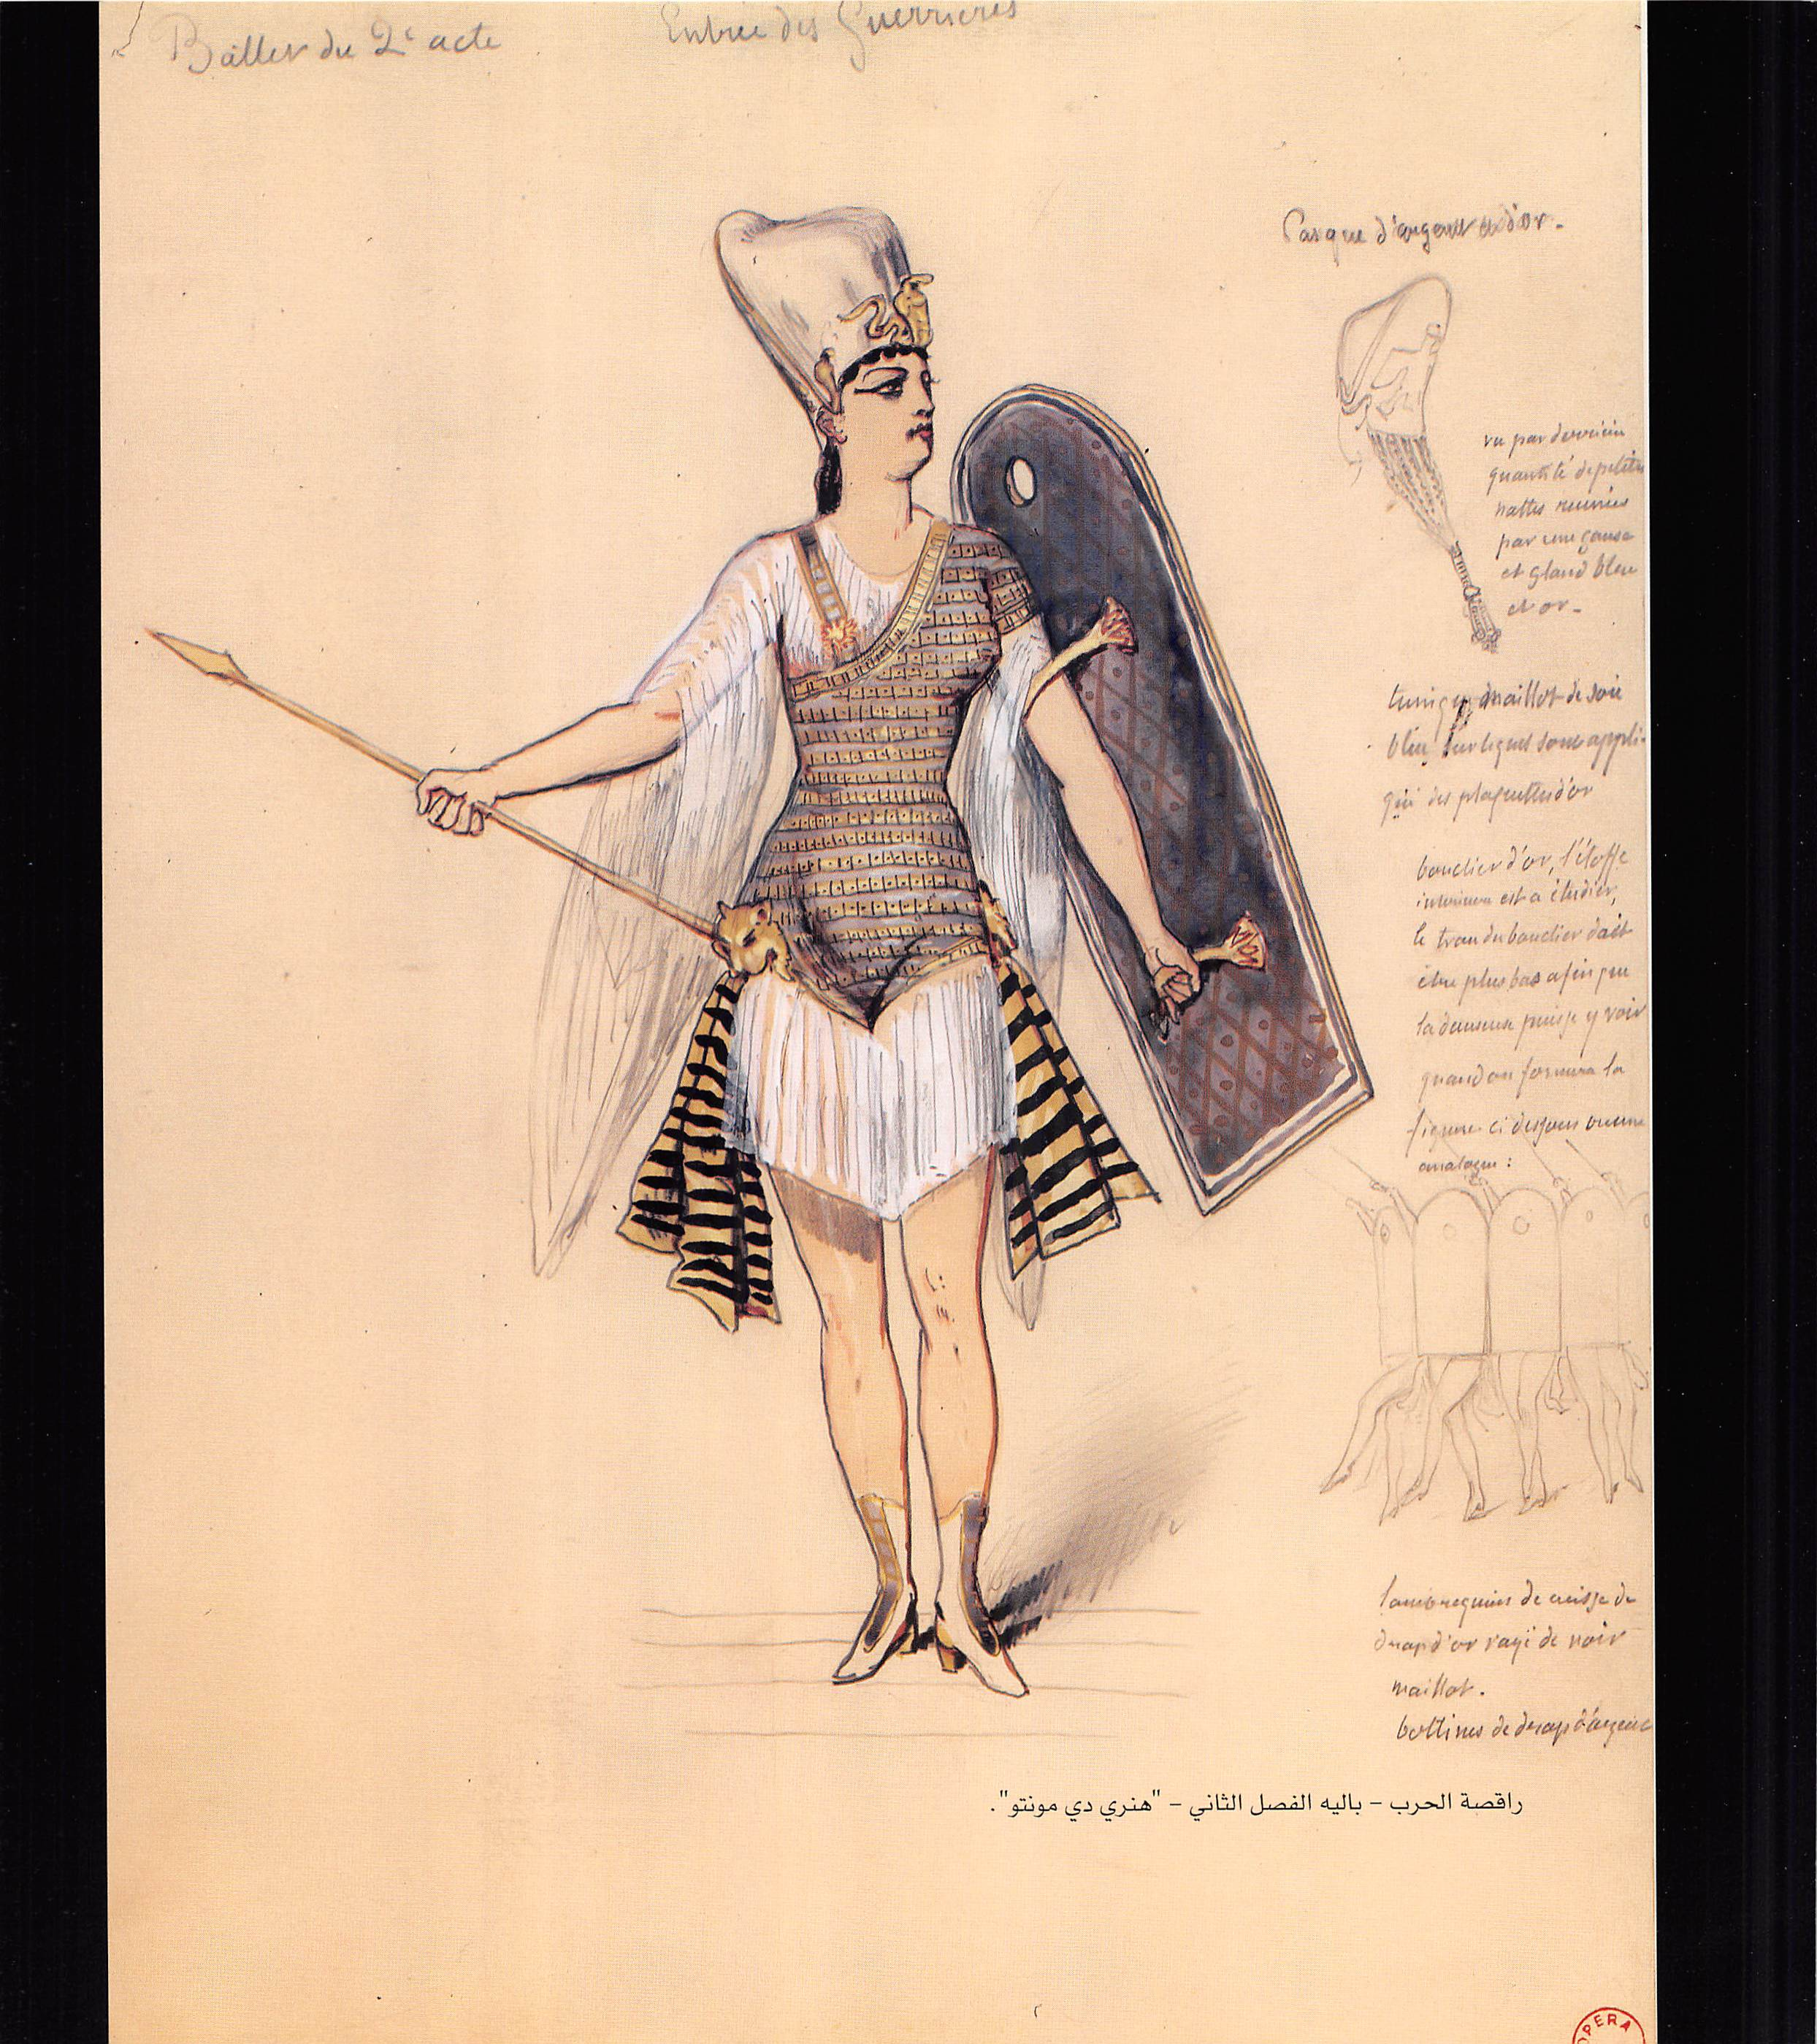 Ballet du 2e acte
Entrée des Guerrières
Casque d'argent et d'or -
vu par derrière
quantité de petites
nattes réunies
par une ganse
et gland bleu
et or -
tunique maillot de soie
bleu sur lequel sont appli-
qué des plaquettes d'or
bouclier d'or, l'étoffe
intérieure est a étudier,
le trou du bouclier doit
être plus bas afin que
la danseuse puisse y voir
quand on formera la
figure ci dessous ou une
analogue :
lambrequins de cuisse de
drap d'or rayé de noir
maillot.
bottines de drap d'argent
راقصة الحرب – باليه الفصل الثاني – "هنري دي مونتو".
OPERA